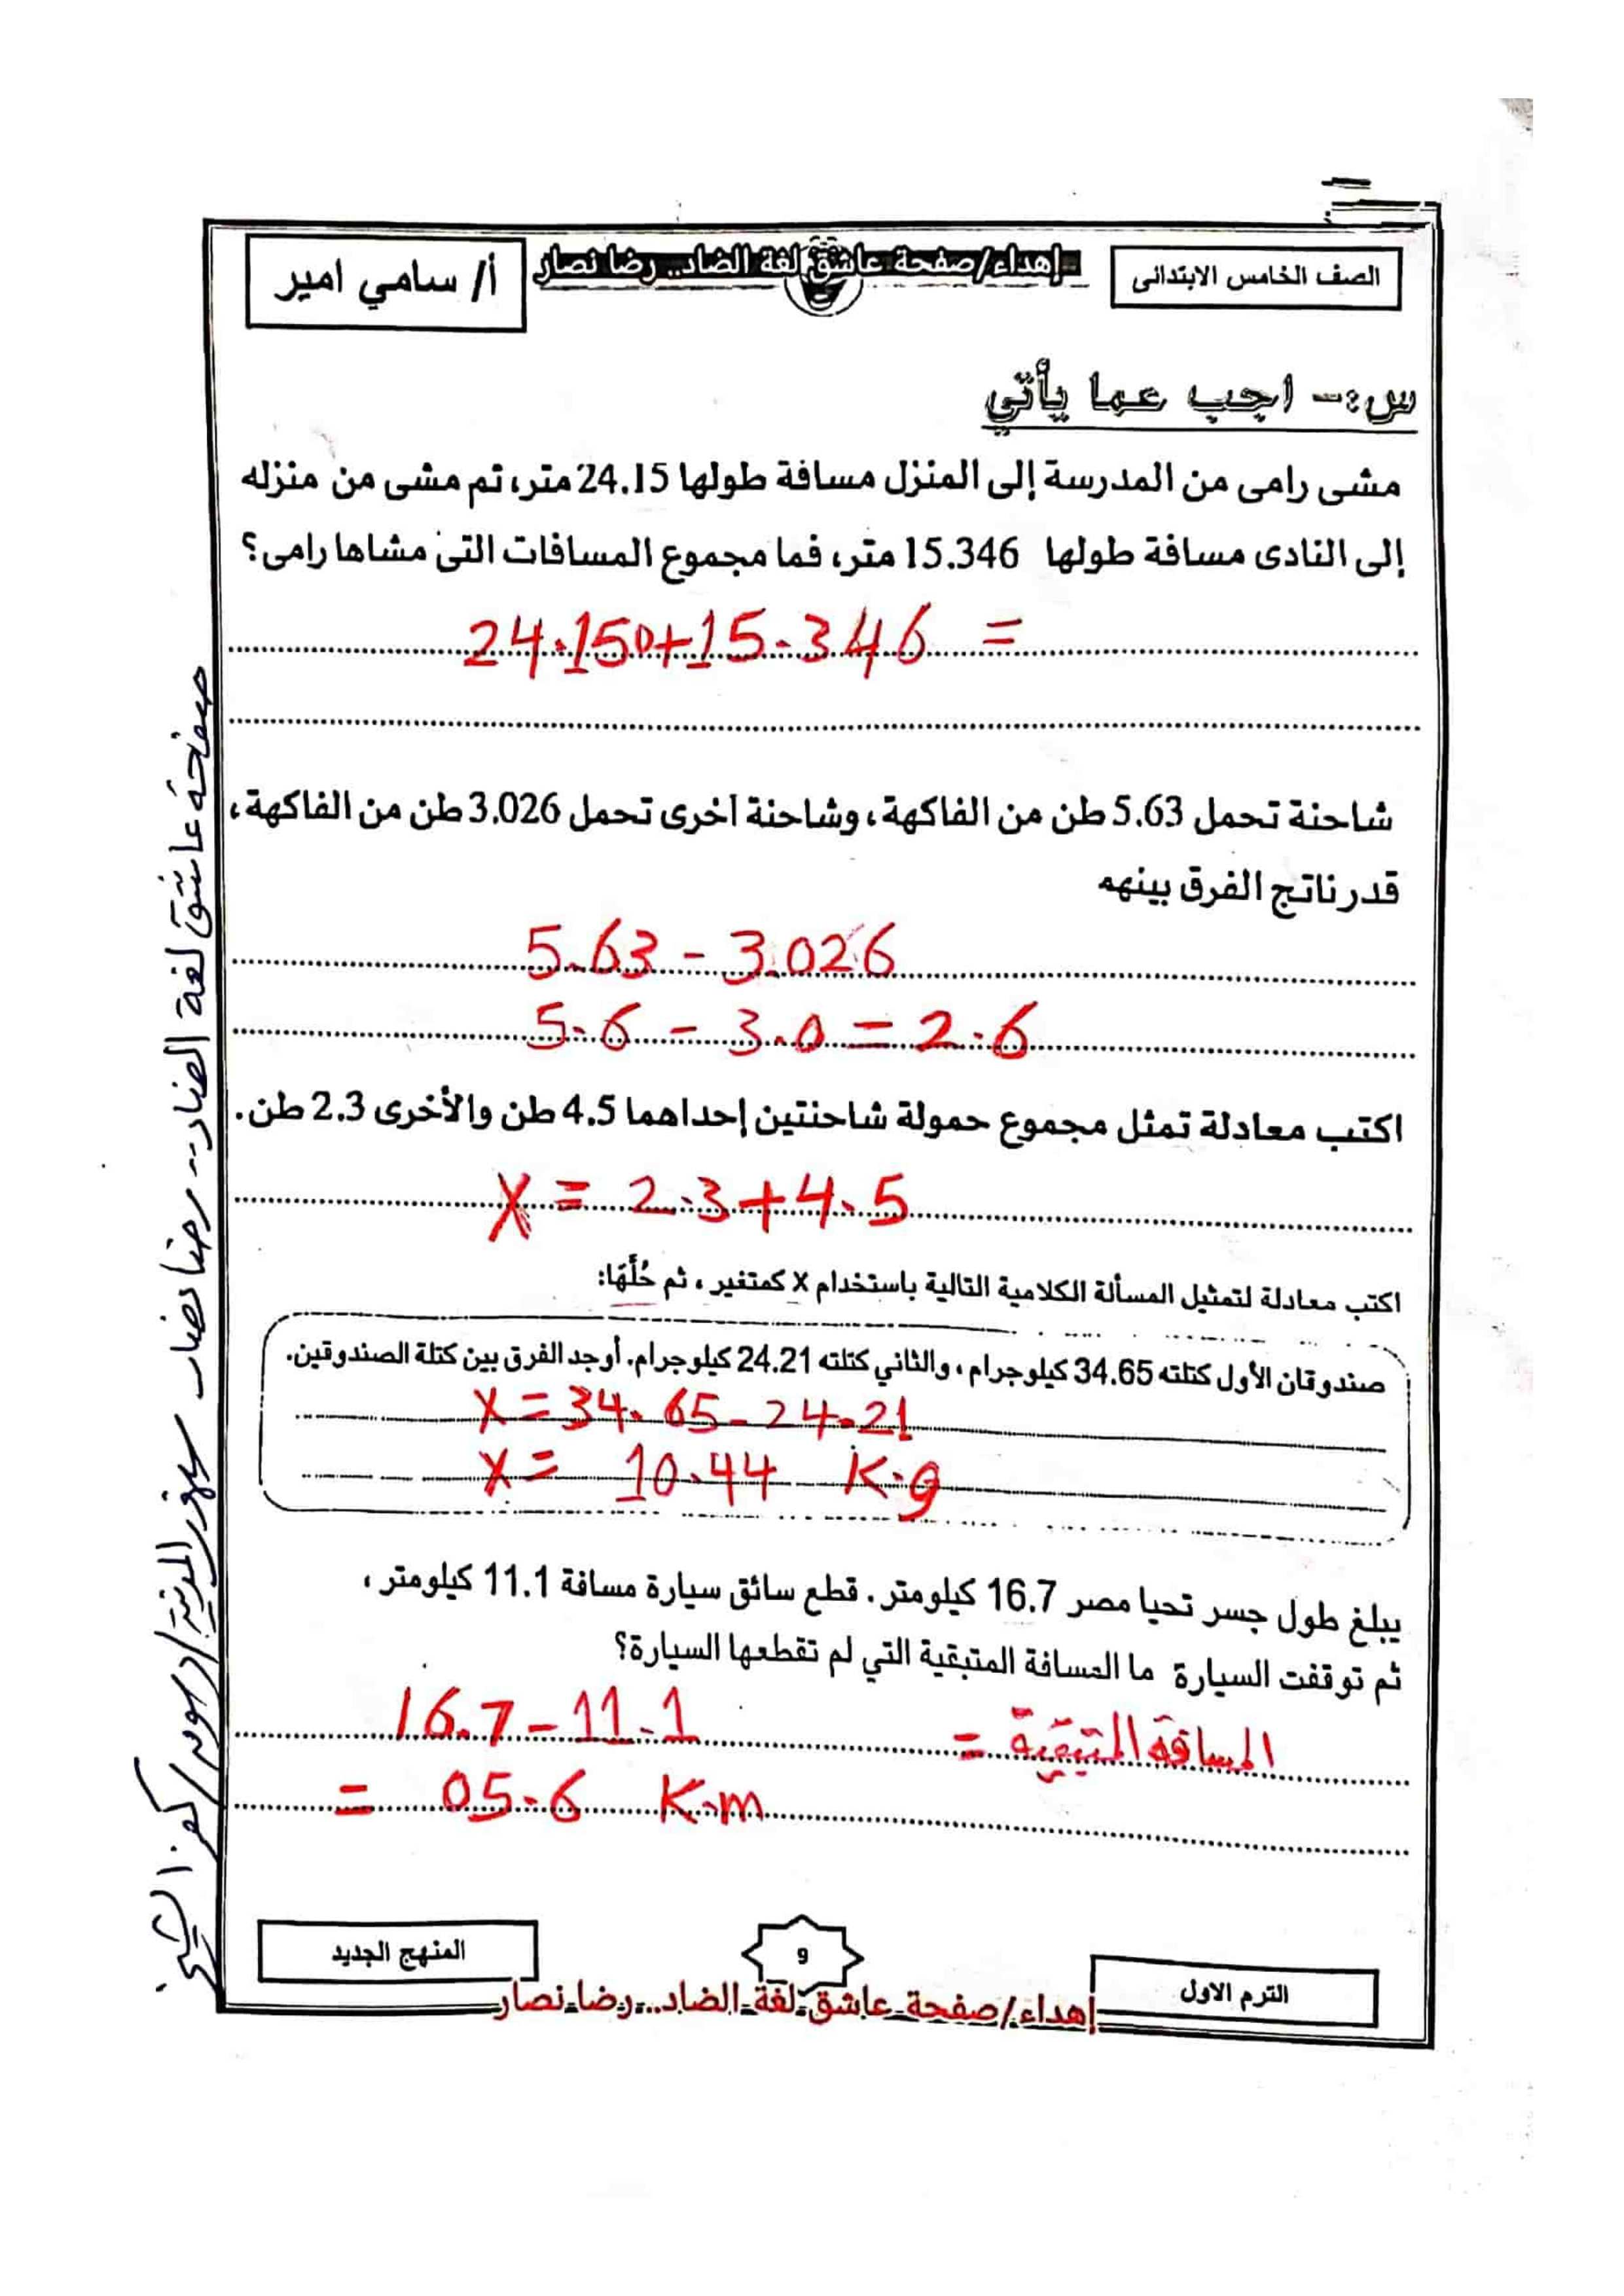 الصف الخامس الابتدائى
إهداء/صفحة عاشق لغة الضاد.. رضا نصار
أ/ سامي امير
س:- اجب عما يأتي
مشى رامى من المدرسة إلى المنزل مسافة طولها 24.15 متر، ثم مشى من منزله
إلى النادى مسافة طولها 15.346 متر، فما مجموع المسافات التى مشاها رامى؟
24.150+15.346 =
شاحنة تحمل 5.63 طن من الفاكهة، وشاحنة آخرى تحمل 3.026 طن من الفاكهة،
قدر ناتج الفرق بينهم
5.63 - 3.026
5.6 - 3.0 = 2.6
اكتب معادلة تمثل مجموع حمولة شاحنتين إحداهما 4.5 طن والأخرى 2.3 طن.
X = 2.3+4.5
اكتب معادلة لتمثيل المسألة الكلامية التالية باستخدام x كمتغير، ثم حُلَّهَا:
صندوقان الأول كتلته 34.65 كيلوجرام، والثاني كتلته 24.21 كيلوجرام. أوجد الفرق بين كتلة الصندوقين.
X = 34.65-24.21
X = 10.44 K.g
يبلغ طول جسر تحيا مصر 16.7 كيلومتر. قطع سائق سيارة مسافة 11.1 كيلومتر،
ثم توقفت السيارة ما المسافة المتبقية التي لم تقطعها السيارة؟
المسافة المتبقية = 16.7-11.1
= 05.6 K.m
الترم الاول
9
المنهج الجديد
إهداء/صفحة عاشق لغة الضاد.. رضا نصار
صفحة عاشق لغة الضاد.. رضا نصار